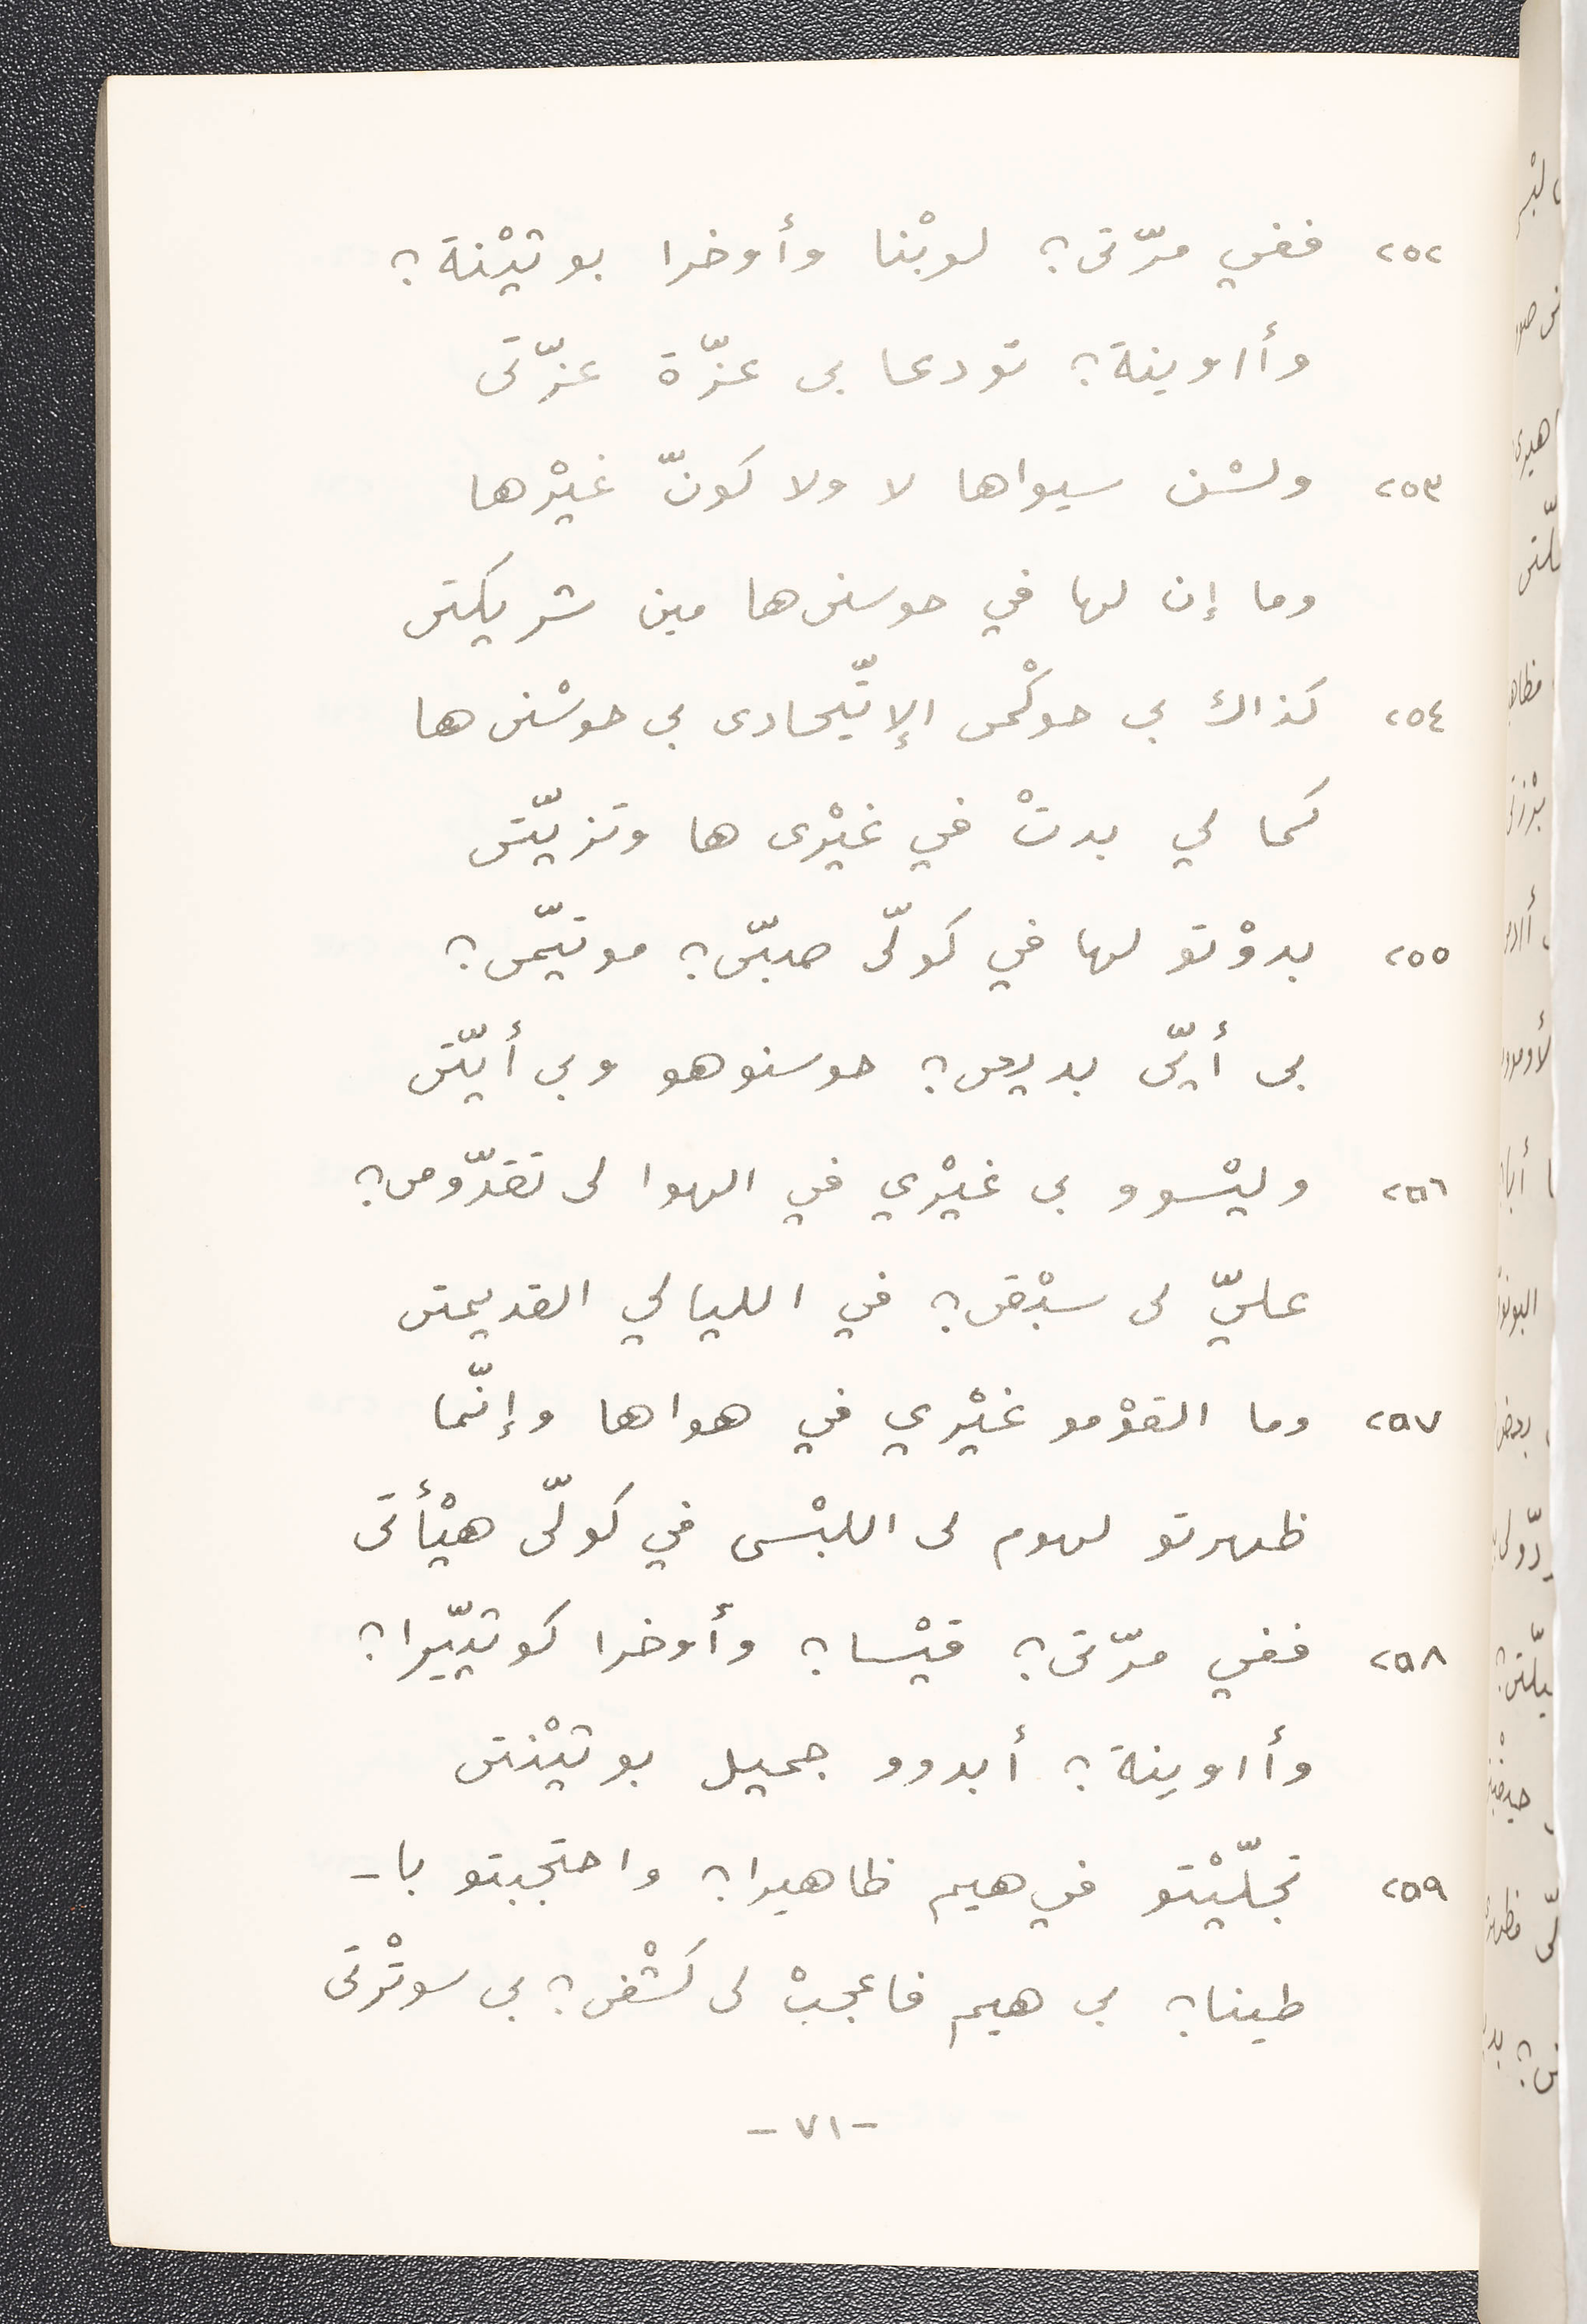 ٢٥٢ ففي مرّتى؟ لوبْنا وأوخرا بوثيْنة؟
وأاوينة؟ تودعا بى عزّة عزّتى
٢٥٣ ولسْن سيواها لا ولا كونّ غيْرها
وما إن لها في حوسنى ها مين شريكتى
٢٥٤ كذاك بى حوكْمى الإتّيحادى بى حوسْنى ها
كما لي بدتْ في غيْرى ها وتزيّتى
٢٥٥ بدوْتو لها في كولّى صبّى؟ موتيّمى؟
بى أيّى بديعى؟ حوسنوهو وبى أيّتى
٢٥٦ وليْسوو بى غيْري في الهوا لى تقدّومى؟
عليّ لى سبْقى؟ في الليالي القديمتى
٢٥٧ وما القوْمو غيْري في هواها وإنّما
ظهرتو لهوم لى اللبْسى في كولّى هيْأتى
٢٥٨ ففي مرّتى؟ قيْسا؟ وأوخرا كوثيّيرا؟
وأاوينة؟ أبدوو جميل بوثيْنتى
٢٥٩ تجلّيْتو في هيم ظاهيرا؟ واحتجبتو با-
طينا؟ بى هيم فاعجبْ لى كشْفى؟ بى سوتْرتى
-٧١-